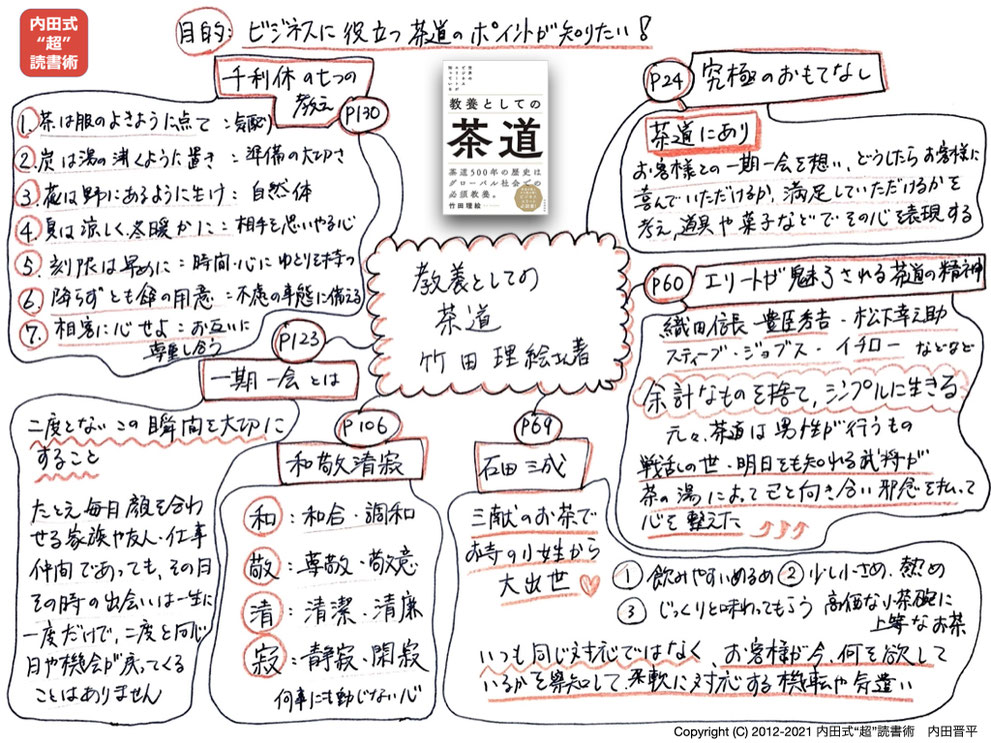 内田式
“超”
読書術
目的: ビジネスに役立つ茶道のポイントが知りたい!
教養としての
茶道
茶道500年の歴史は
グローバル社会での
必須教養。
竹田理絵
教養としての
茶道
竹田理絵著者
P24
究極のおもてなし
茶道にあり
お客様との一期一会を想い、どうしたらお客様に
喜んでいただけるか、満足していただけるかを
考え、道具や菓子などでその心を表現する
P60
エリートが魅了される茶道の精神
織田信長・豊臣秀吉・松下幸之助
スティーブ・ジョブス・イチローなどなど
余計なものを捨て、シンプルに生きる
元々、茶道は男性が行うもの
戦乱の世・明日をも知れぬ武将が
茶の湯によって己と向き合い邪念を払って
心を整えた
P69
石田三成
三献のお茶で
お寺の小姓から
大出世
① 飲みやすいぬるめ ② 少し小さめ、熱め
③ じっくりと味わってもらう 高価な小茶碗に
上等なお茶
いつも同じ対応ではなく、お客様が今、何を欲して
いるかを察知して柔軟に対応する機転や気遣い
P106
和敬清寂
和: 和合・調和
敬: 尊敬・敬意
清: 清潔・清廉
寂: 静寂・閑寂
何事にも動じない心
P123
一期一会とは
二度とないこの瞬間を大切に
すること
たとえ毎日顔を合わ
せる家族や友人・仕事
仲間であっても、その日
その時の出会いは一生に
一度だけで、二度と同じ
日や機会が戻ってくる
ことはありません
千利休の七つの
教え
P130
1. 茶は服のよきように点て: 気配り
2. 炭は湯の沸くように置き: 準備の大切さ
3. 花は野にあるように生け: 自然体
4. 夏は涼しく、冬暖かに: 相手を思いやる心
5. 刻限は早めに: 時間・心にゆとりを持つ
6. 降らずとも傘の用意: 不慮の事態に備える
7. 相客に心せよ: お互いに
尊重し合う
Copyright (C) 2012-2021 内田式“超”読書術 内田晋平